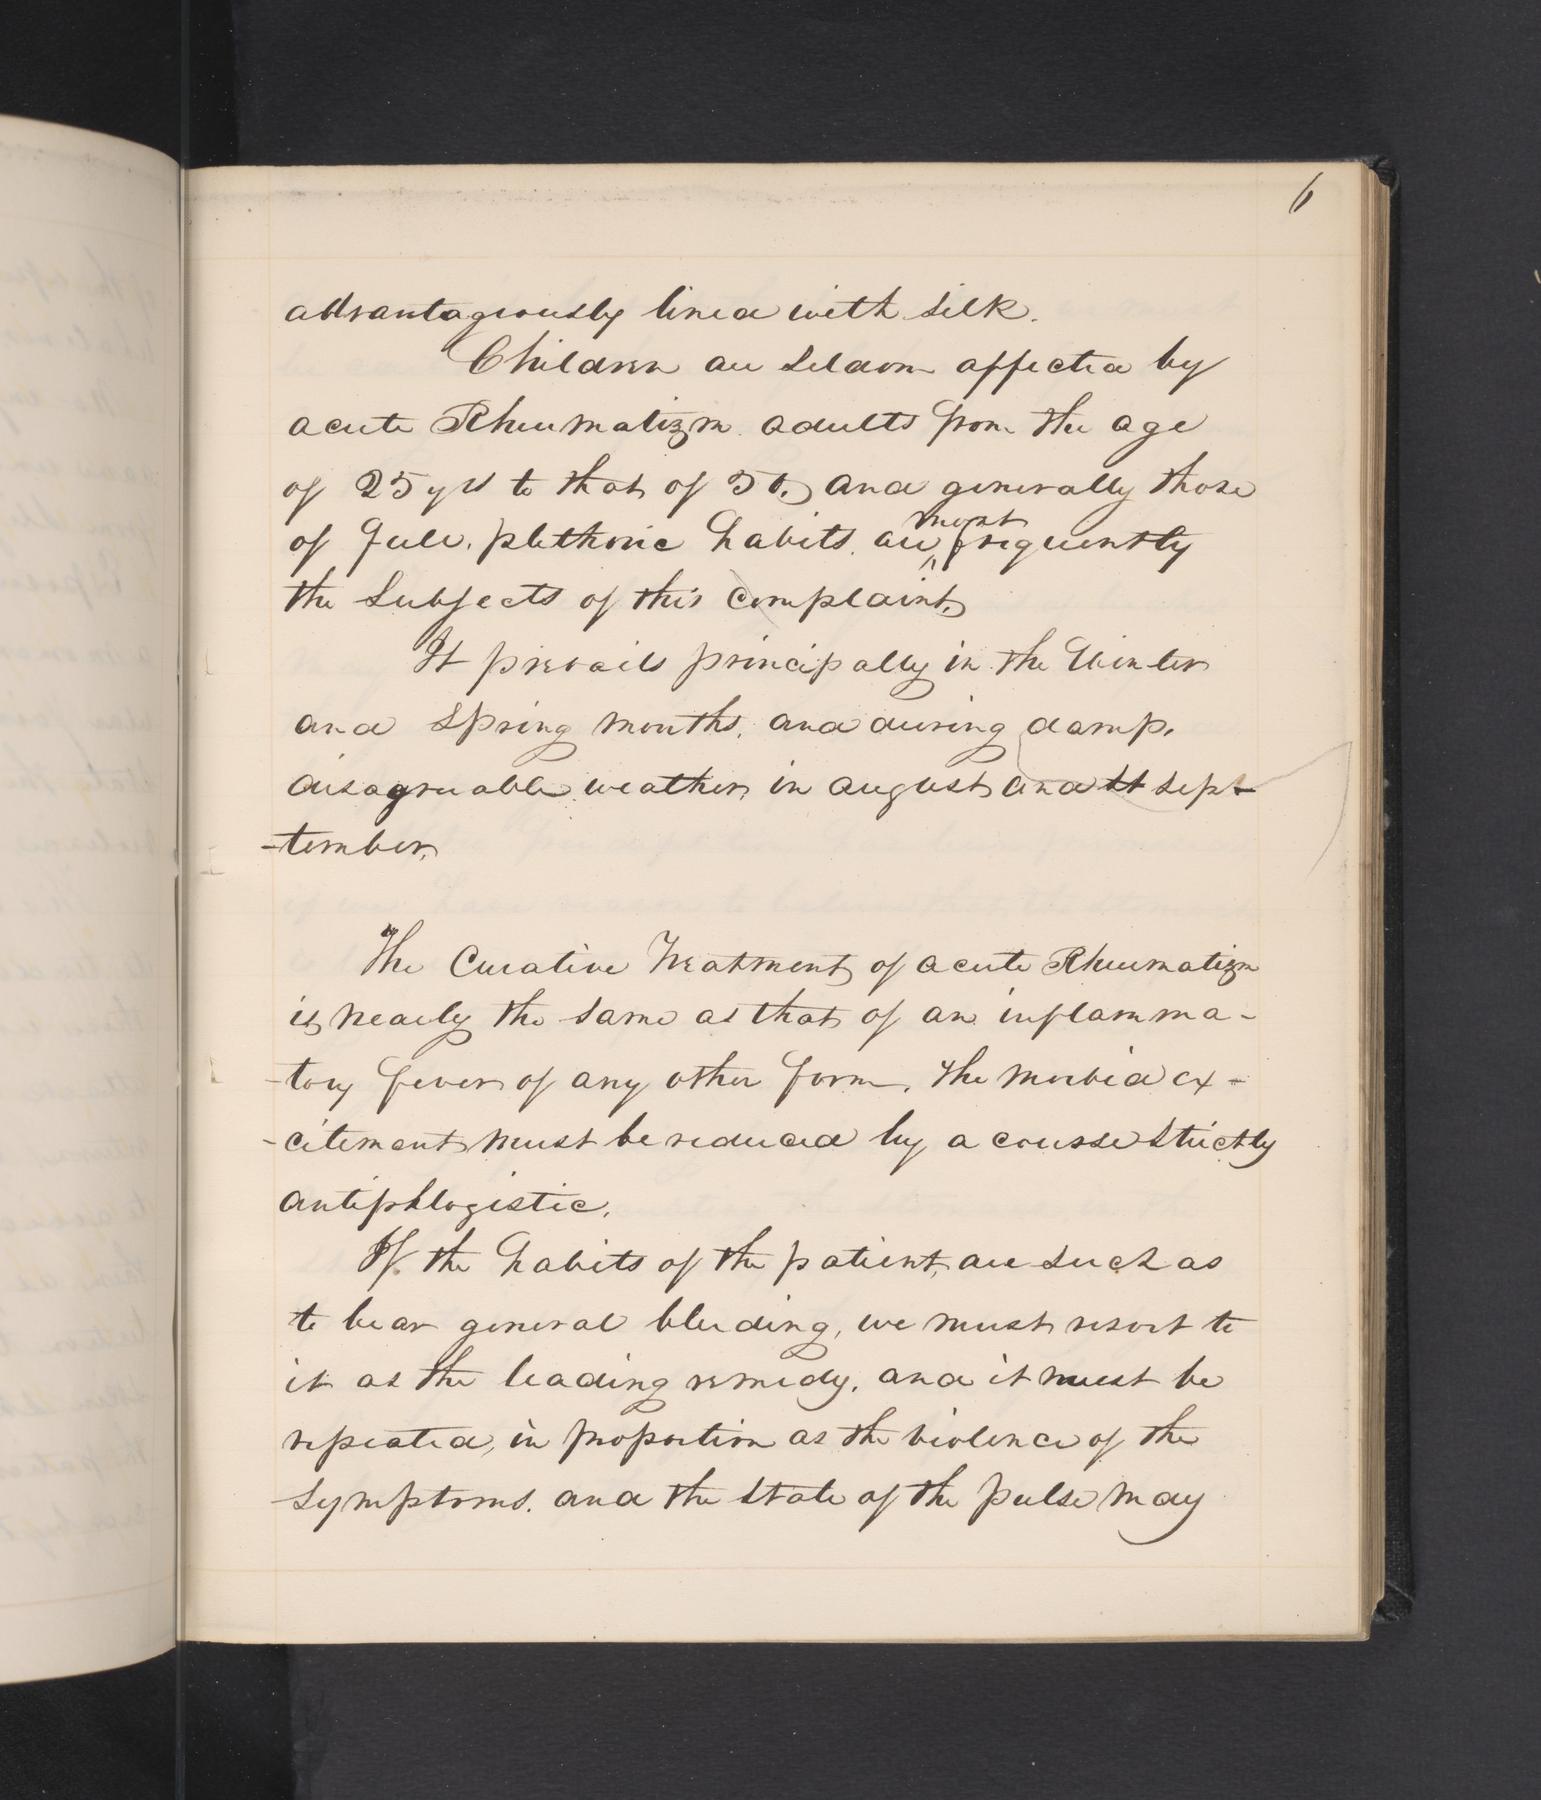 6
advantageously lined with silk.
Children are seldom affected by
acute Rheumatizm. adults from the age
of 25 yrs to that of 50, and generally those
of full, plethoric habits. are ^most frequently
the Subjects of this complaint,
It prevails principally in the Winter
and Spring months, and during damp,
disagreeable weather, in august and St sept-
-tember,
The Curative Treatment of acute Rheumatizm
is nearly the same as that of an inflamma-
-tory fever of any other form, The morbid ex-
-citement must be reduced by a course strictly
antiphlogistic,
If the habits of the patient, are such as
to bear general bleeding, we must resort to
it as the leading remedy, and it must be
repeated, in proportion as the violence of the
symptoms, and the state of the pulse may